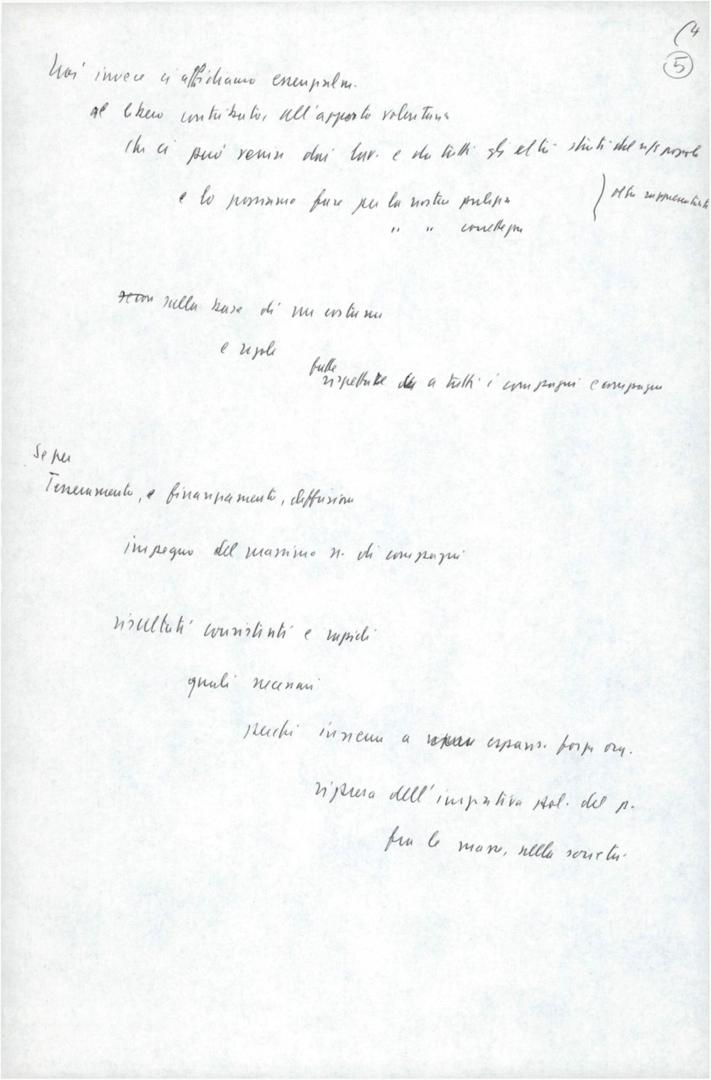 4
5
Noi invece ci affidiamo essenzialm.
al libero contributo, all'apporto volontario
che ci può venire dai lav. e da tutti gli altri strati del ns popolo
e lo possiamo fare per la nostra politica
" " condotta
sulla base di un costume
e regole
fatte
rispettate da a tutti i compagni e compagne
Se per
Tesseramento, e finanziamento, diffusione
impegno del massimo n. di compagni
risultati consistenti e rapidi
quali necessari
perché insieme a espans. forza org.
ripresa dell'iniziativa pol. del p.
fra le masse, nella società.